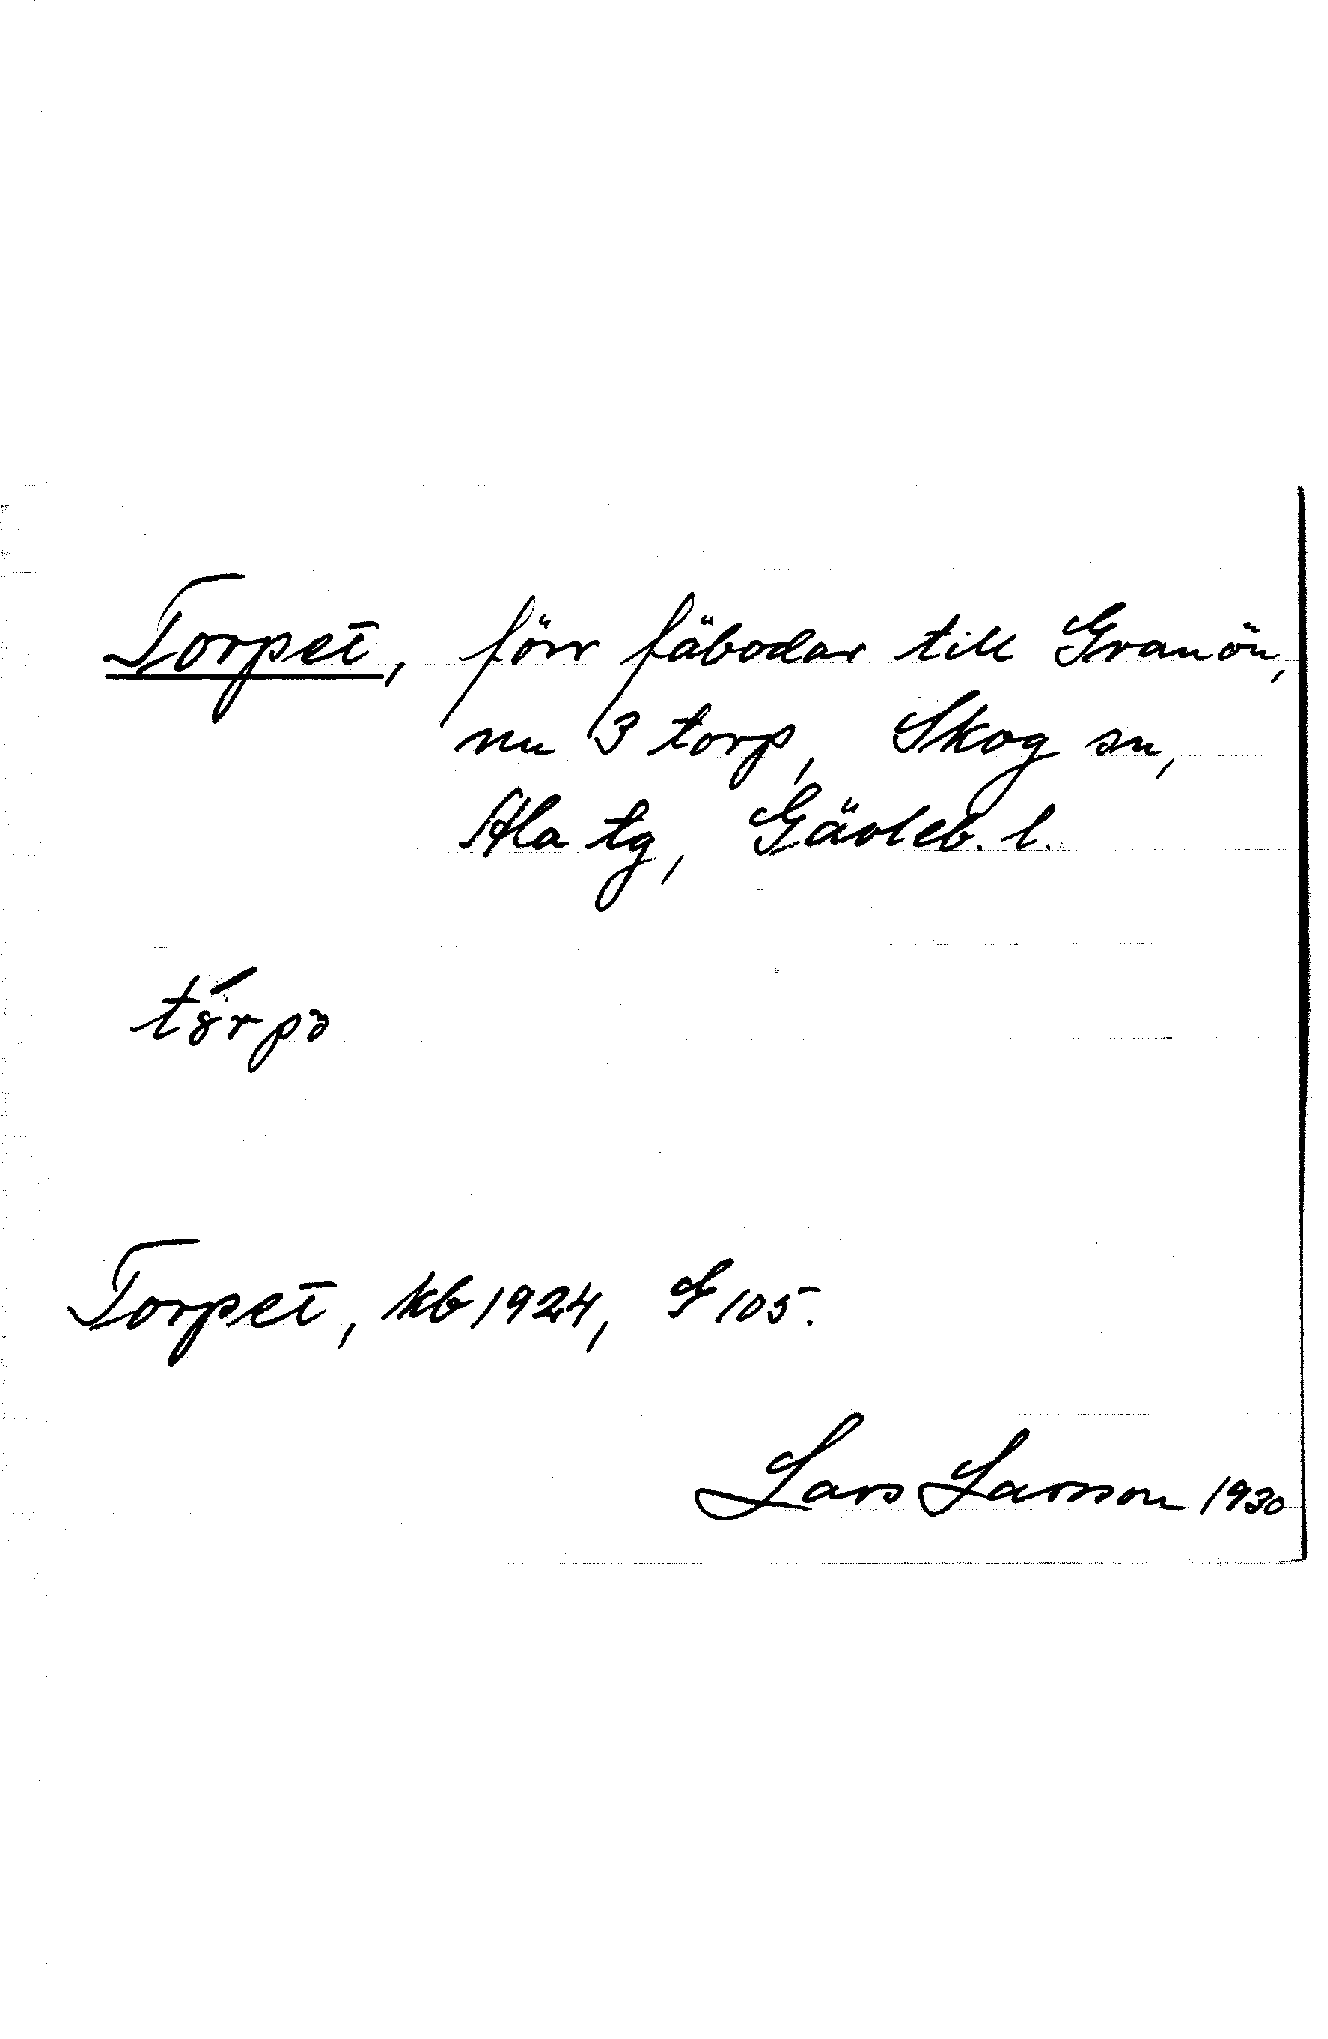 Torpet, förr fäbodar till Granön,
nu 3 torp, Skog sn,
Ala tg, Gävleb. l.
Torpet, kb 1924, S 105.
Lars Larsson 1930